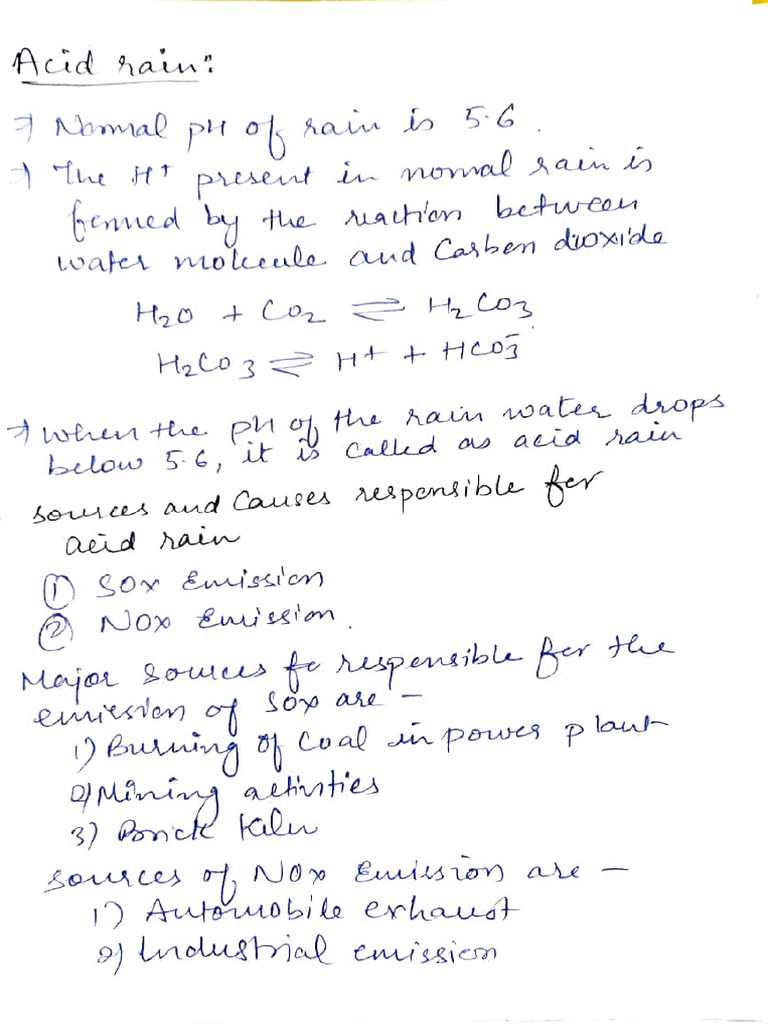 Acid rain:
→ Normal pH of rain is 5.6.
→ The H⁺ present in normal rain is
formed by the reaction between
water molecule and Carbon dioxide
H₂O + CO₂ ⇌ H₂CO₃
H₂CO₃ ⇌ H⁺ + HCO₃⁻
→ When the pH of the rain water drops
below 5.6, it is called as acid rain
sources and Causes responsible for
acid rain
① SOx Emission
② NOx Emission.
Major sources fo responsible for the
emission of SOx are –
1) Burning of Coal in power plant
2) Mining activities
3) Brick kiln
sources of NOx Emission are –
1) Automobile exhaust
2) Industrial emission